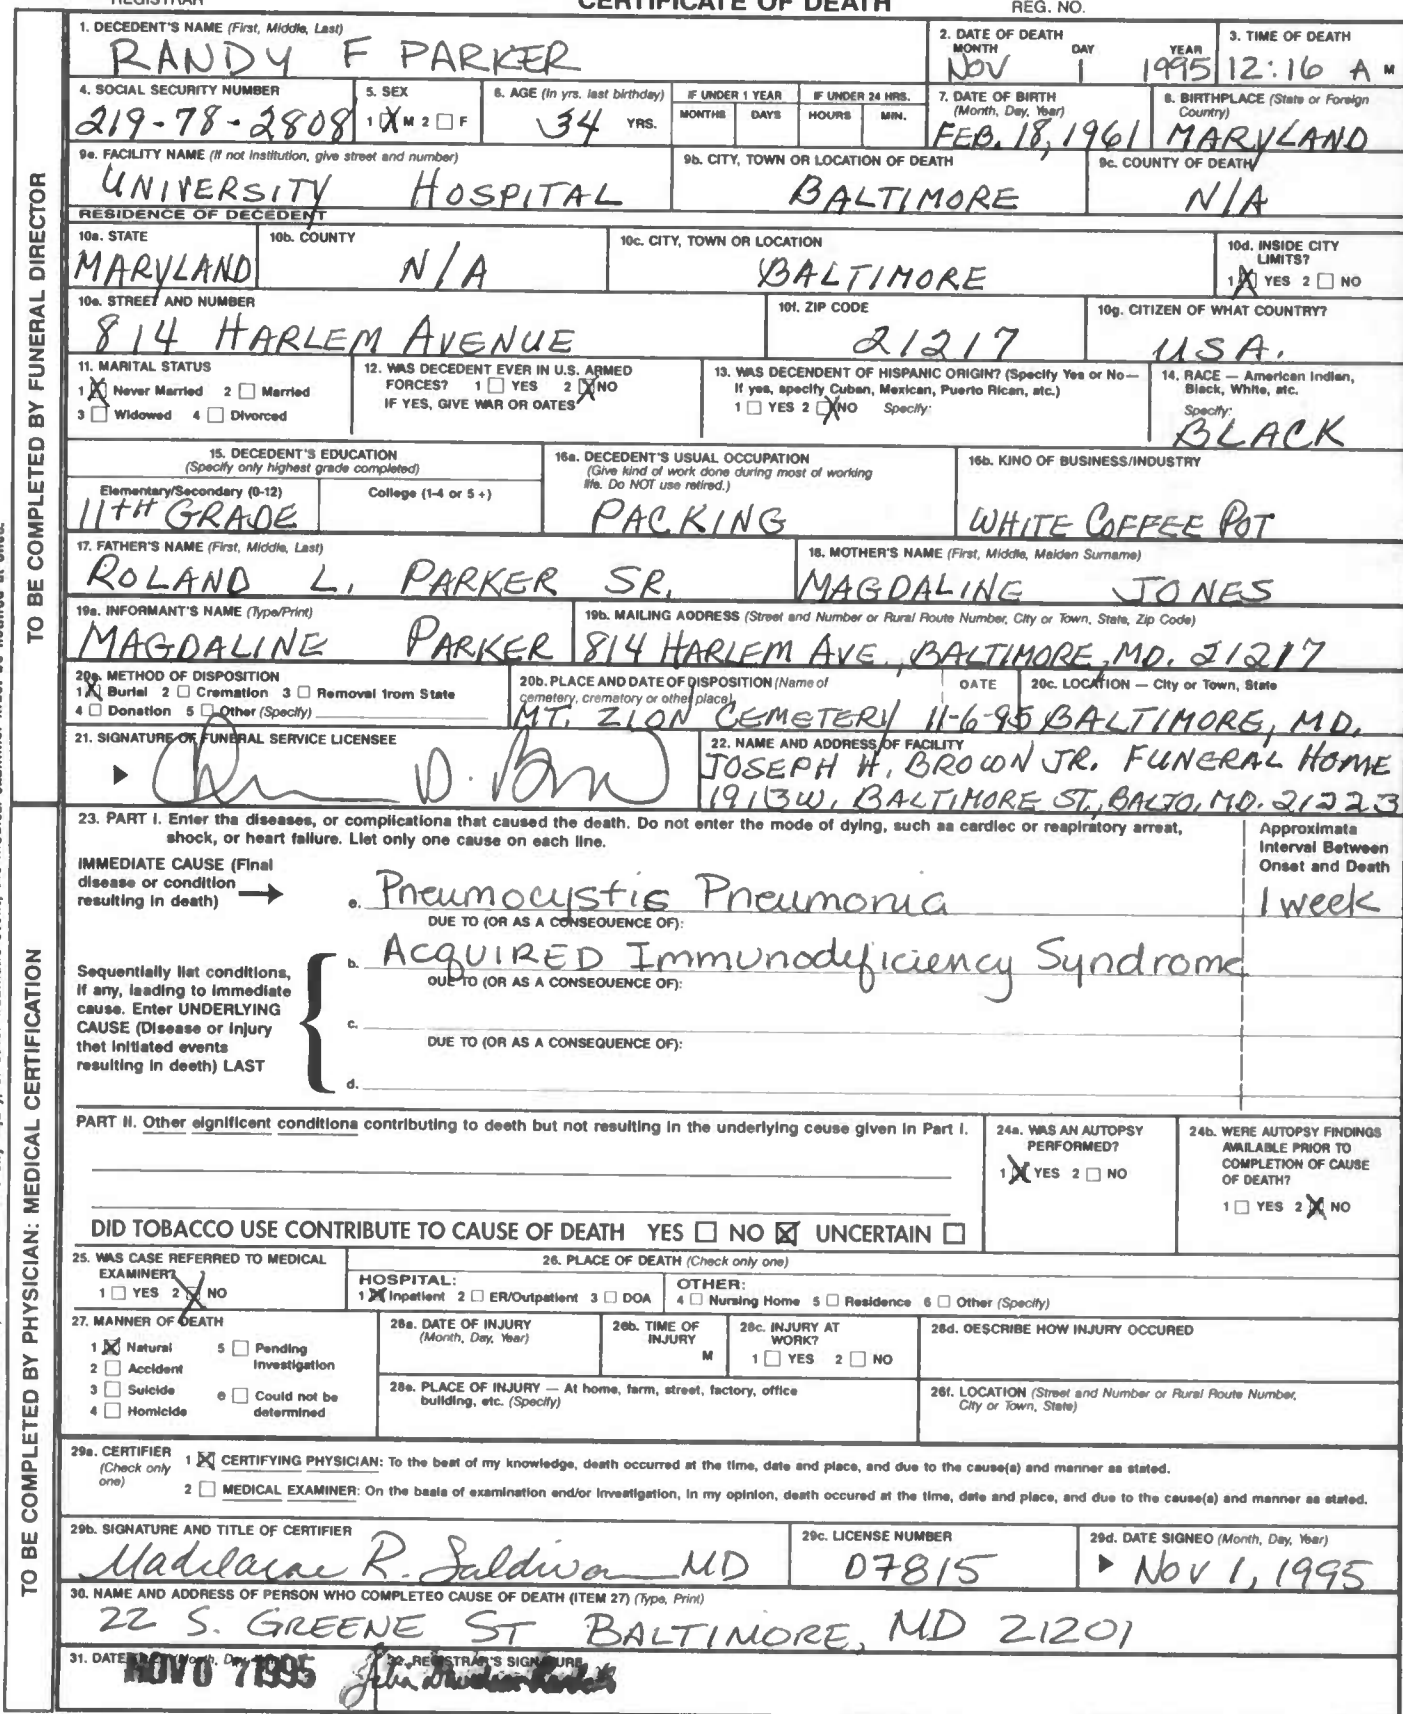 REGISTRAR CERTIFICATE OF DEATH REG. NO.
TO BE COMPLETED BY FUNERAL DIRECTOR
1. DECEDENT'S NAME (First, Middle, Last)
RANDY F PARKER
2. DATE OF DEATH
MONTH DAY YEAR
NOV 1 1995
3. TIME OF DEATH
12:16 A M
4. SOCIAL SECURITY NUMBER
219-78-2808
5. SEX
1 X M 2 □ F
6. AGE (In yrs. last birthday)
34 YRS.
IF UNDER 1 YEAR
MONTHS DAYS
IF UNDER 24 HRS.
HOURS MIN.
7. DATE OF BIRTH
(Month, Day, Year)
FEB. 18, 1961
8. BIRTHPLACE (State or Foreign
Country)
MARYLAND
9a. FACILITY NAME (If not institution, give street and number)
UNIVERSITY HOSPITAL
9b. CITY, TOWN OR LOCATION OF DEATH
BALTIMORE
9c. COUNTY OF DEATH
N/A
RESIDENCE OF DECEDENT
10a. STATE
MARYLAND
10b. COUNTY
N/A
10c. CITY, TOWN OR LOCATION
BALTIMORE
10d. INSIDE CITY
LIMITS?
1 X YES 2 □ NO
10e. STREET AND NUMBER
814 HARLEM AVENUE
10f. ZIP CODE
21217
10g. CITIZEN OF WHAT COUNTRY?
USA.
11. MARITAL STATUS
1 X Never Married 2 □ Married
3 □ Widowed 4 □ Divorced
12. WAS DECEDENT EVER IN U.S. ARMED
FORCES? 1 □ YES 2 X NO
IF YES, GIVE WAR OR DATES
13. WAS DECENDENT OF HISPANIC ORIGIN? (Specify Yes or No—
If yes, specify Cuban, Mexican, Puerto Rican, etc.)
1 □ YES 2 X NO Specify:
14. RACE — American Indian,
Black, White, etc.
Specify:
BLACK
15. DECEDENT'S EDUCATION
(Specify only highest grade completed)
Elementary/Secondary (0-12) College (1-4 or 5 +)
11TH GRADE
16a. DECEDENT'S USUAL OCCUPATION
(Give kind of work done during most of working
life. Do NOT use retired.)
PACKING
16b. KIND OF BUSINESS/INDUSTRY
WHITE COFFEE POT
17. FATHER'S NAME (First, Middle, Last)
ROLAND L. PARKER SR.
18. MOTHER'S NAME (First, Middle, Maiden Surname)
MAGDALINE JONES
19a. INFORMANT'S NAME (Type/Print)
MAGDALINE PARKER
19b. MAILING ADDRESS (Street and Number or Rural Route Number, City or Town, State, Zip Code)
814 HARLEM AVE., BALTIMORE, MD. 21217
20a. METHOD OF DISPOSITION
1 X Burial 2 □ Cremation 3 □ Removal from State
4 □ Donation 5 □ Other (Specify)
20b. PLACE AND DATE OF DISPOSITION (Name of
cemetery, crematory or other place)
MT. ZION CEMETERY
DATE
11-6-95
20c. LOCATION — City or Town, State
BALTIMORE, MD.
21. SIGNATURE OF FUNERAL SERVICE LICENSEE
22. NAME AND ADDRESS OF FACILITY
JOSEPH H. BROWN JR. FUNERAL HOME
1913 W. BALTIMORE ST., BALTO, MD. 21223
TO BE COMPLETED BY PHYSICIAN: MEDICAL CERTIFICATION
23. PART I. Enter the diseases, or complications that caused the death. Do not enter the mode of dying, such as cardiac or respiratory arrest,
shock, or heart failure. List only one cause on each line.
Approximate
Interval Between
Onset and Death
IMMEDIATE CAUSE (Final
disease or condition
resulting in death)
a. Pneumocystis Pneumonia 1 week
DUE TO (OR AS A CONSEQUENCE OF):
b. ACQUIRED Immunodeficiency Syndrome
DUE TO (OR AS A CONSEQUENCE OF):
Sequentially list conditions,
if any, leading to immediate
cause. Enter UNDERLYING
CAUSE (Disease or injury
that initiated events
resulting in death) LAST
c.
DUE TO (OR AS A CONSEQUENCE OF):
d.
PART II. Other significant conditions contributing to death but not resulting in the underlying cause given in Part I.
24a. WAS AN AUTOPSY
PERFORMED?
1 X YES 2 □ NO
24b. WERE AUTOPSY FINDINGS
AVAILABLE PRIOR TO
COMPLETION OF CAUSE
OF DEATH?
1 □ YES 2 X NO
DID TOBACCO USE CONTRIBUTE TO CAUSE OF DEATH YES □ NO X UNCERTAIN □
25. WAS CASE REFERRED TO MEDICAL
EXAMINER?
1 □ YES 2 X NO
26. PLACE OF DEATH (Check only one)
HOSPITAL:
1 X Inpatient 2 □ ER/Outpatient 3 □ DOA
OTHER:
4 □ Nursing Home 5 □ Residence 6 □ Other (Specify)
27. MANNER OF DEATH
1 X Natural 5 □ Pending
Investigation
2 □ Accident
3 □ Suicide 6 □ Could not be
determined
4 □ Homicide
28a. DATE OF INJURY
(Month, Day, Year)
28b. TIME OF
INJURY
M
28c. INJURY AT
WORK?
1 □ YES 2 □ NO
28d. DESCRIBE HOW INJURY OCCURED
28e. PLACE OF INJURY — At home, farm, street, factory, office
building, etc. (Specify)
28f. LOCATION (Street and Number or Rural Route Number,
City or Town, State)
29a. CERTIFIER
(Check only
one)
1 X CERTIFYING PHYSICIAN: To the best of my knowledge, death occurred at the time, date and place, and due to the cause(s) and manner as stated.
2 □ MEDICAL EXAMINER: On the basis of examination and/or investigation, in my opinion, death occured at the time, date and place, and due to the cause(s) and manner as stated.
29b. SIGNATURE AND TITLE OF CERTIFIER
R. MD
29c. LICENSE NUMBER
07815
29d. DATE SIGNED (Month, Day, Year)
Nov 1, 1995
30. NAME AND ADDRESS OF PERSON WHO COMPLETED CAUSE OF DEATH (ITEM 27) (Type, Print)
22 S. GREENE ST BALTIMORE, MD 21201
31. DATE
NOV 07 1995
REGISTRAR'S SIGNATURE